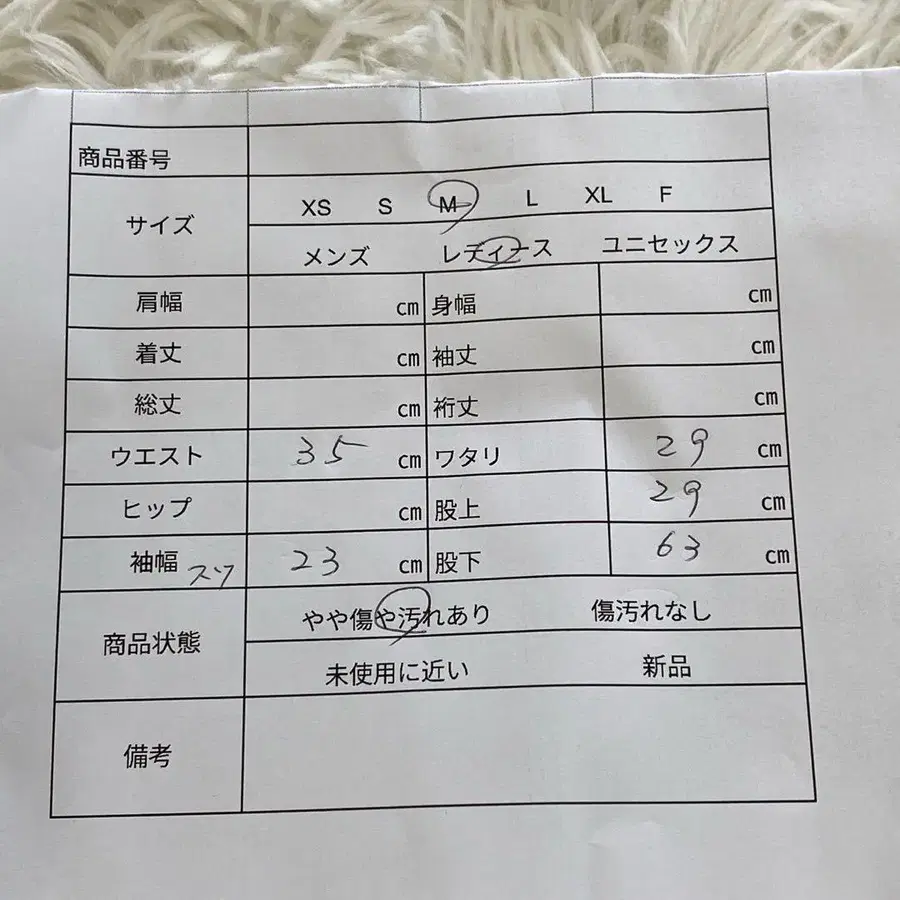 商品番号
サイズ XS S M L XL F
メンズ レディース ユニセックス
肩幅 cm 身幅 cm
着丈 cm 袖丈 cm
総丈 cm 裄丈 cm
ウエスト 35 cm ワタリ 29 cm
ヒップ cm 股上 29 cm
袖幅 スソ 23 cm 股下 63 cm
商品状態 やや傷や汚れあり 傷汚れなし
未使用に近い 新品
備考